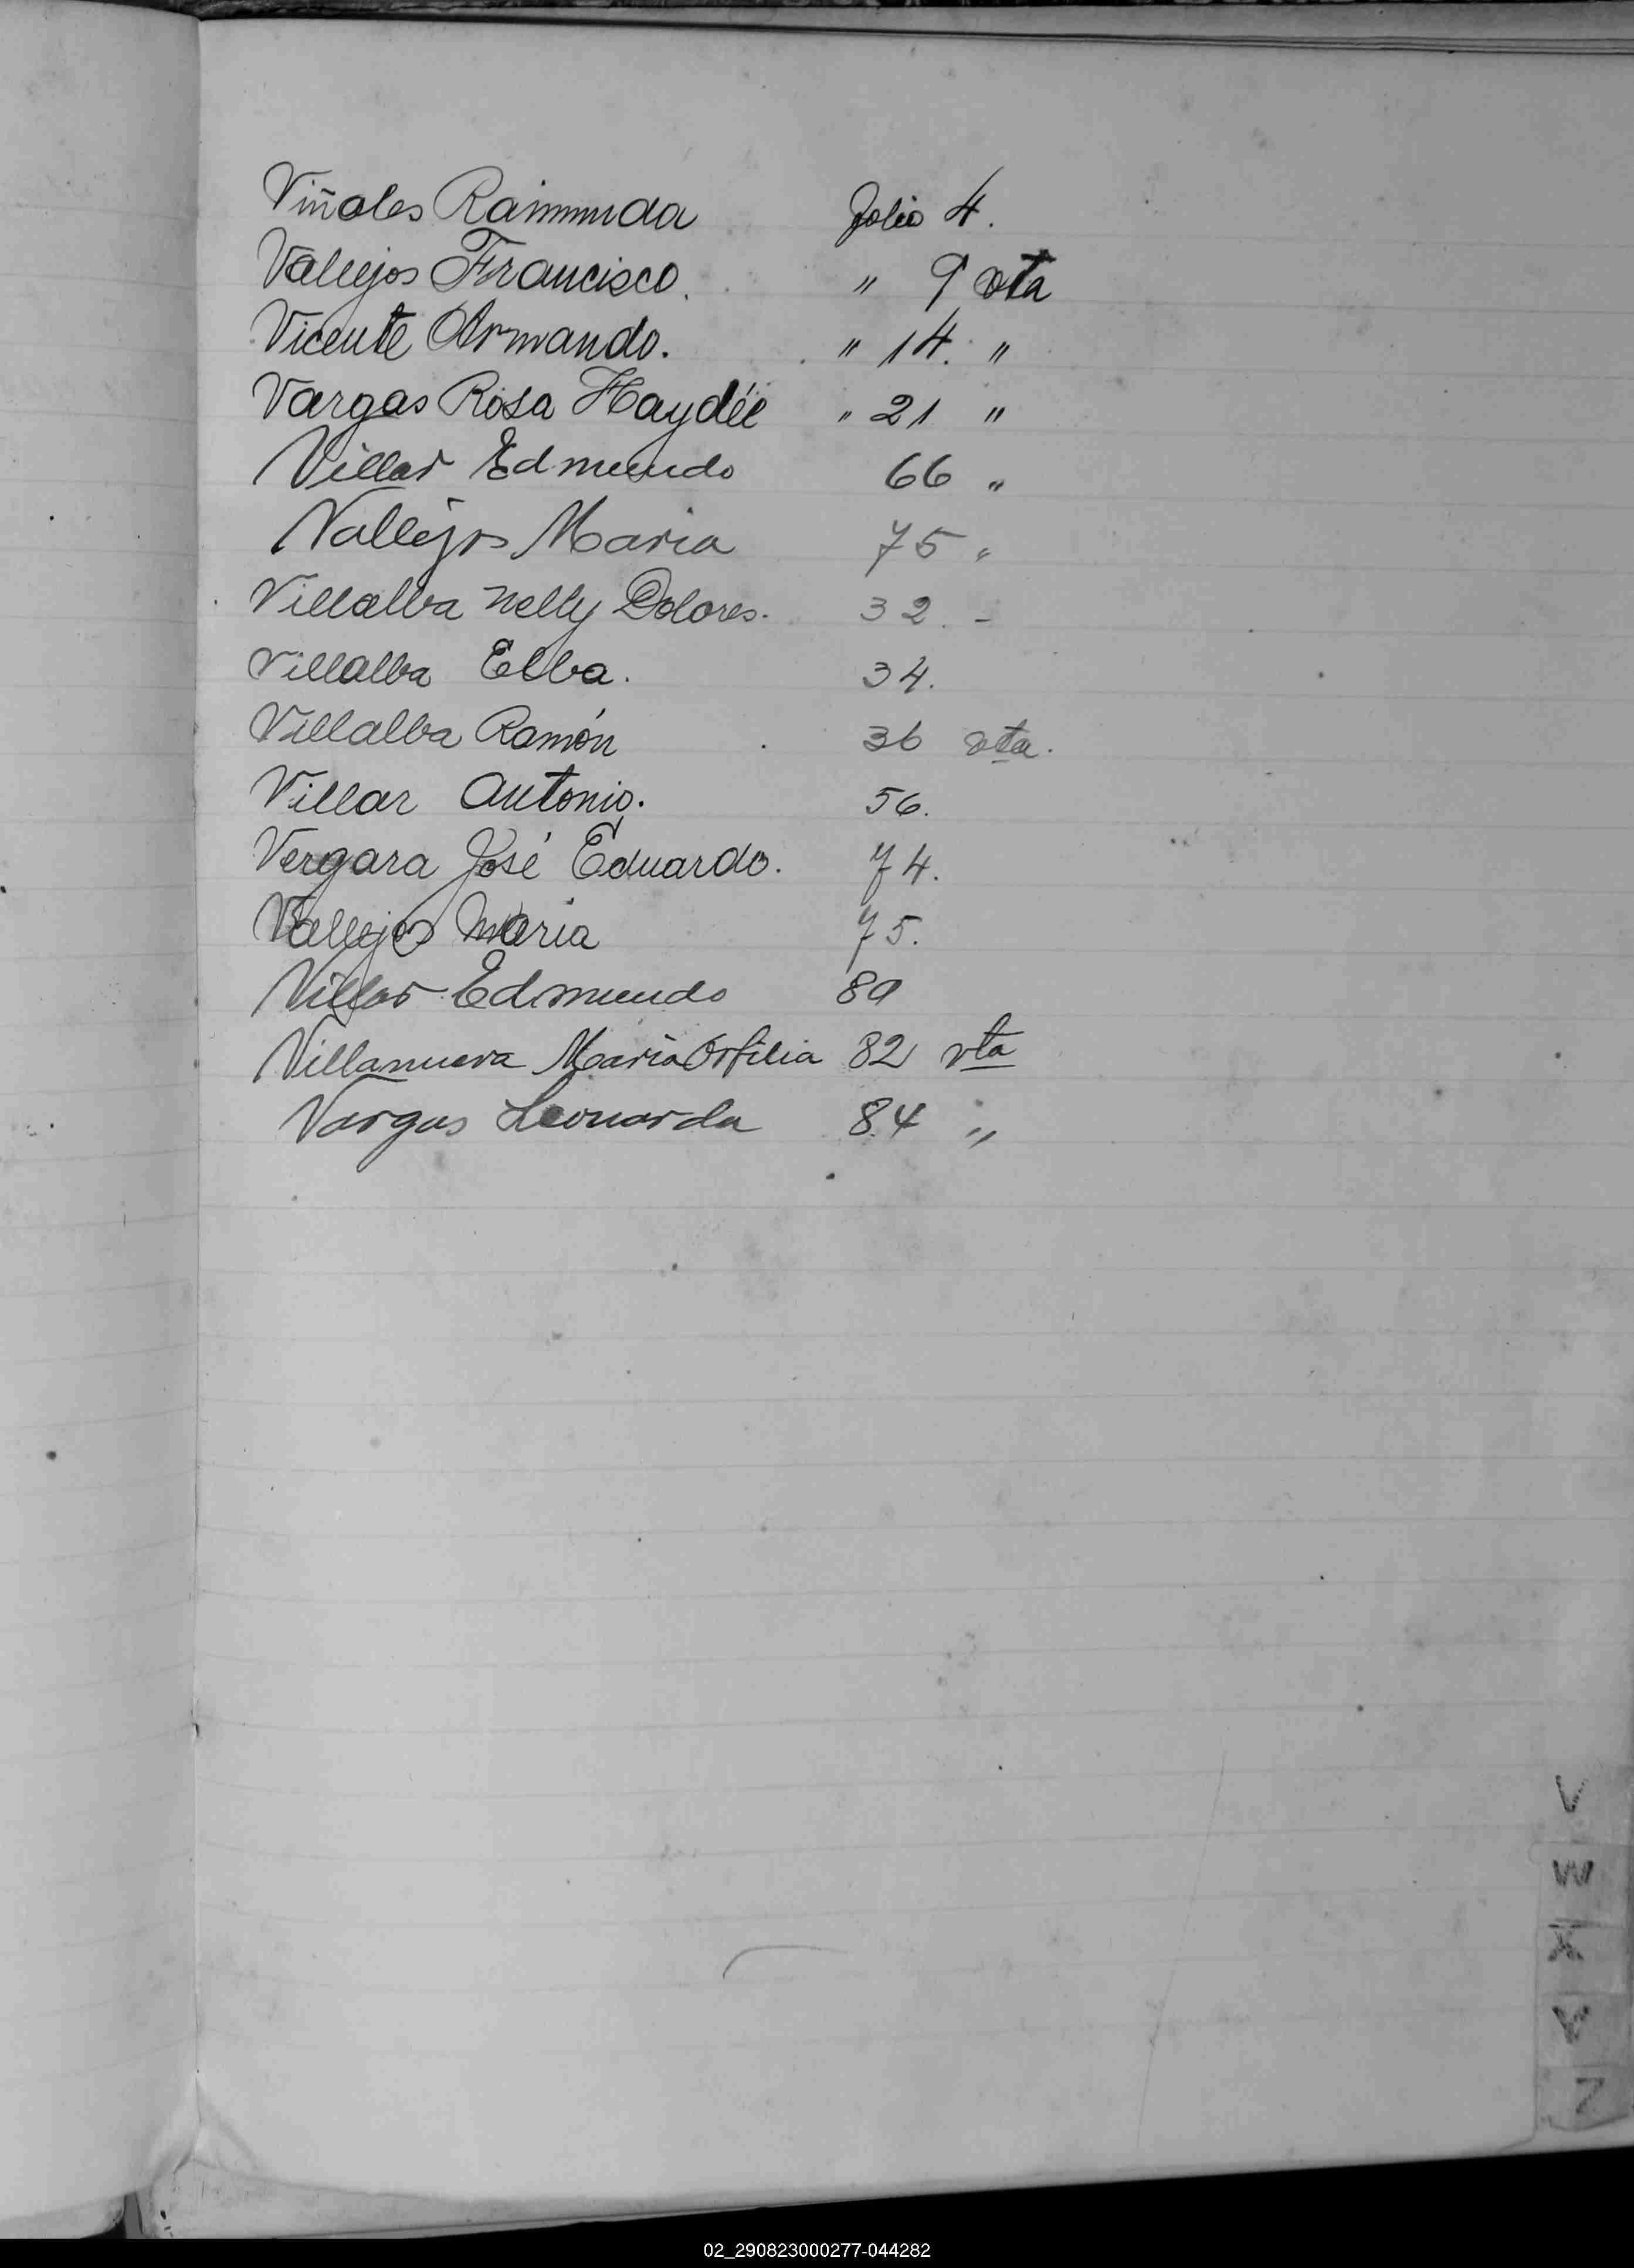 Viñales Raimunda Folio 4.
Vallejos Francisco. " 9 vta
Vicente Armando. " 14. "
Vargas Rosa Haydée " 21 "
Villar Edmundo 66 "
Vallejos Maria 75 "
Villalba Nelly Dolores. 32. -
Villalba Elba. 34.
Villalba Ramón 36 vta.
Villar Antonio. 56.
Vergara José Eduardo. 74.
Vallejos Maria 75.
Villar Edmundo
Villanueva Maria Orfilia 82 vta
Vargas Leonarda 84 "
V
W
X
Y
Z
02_290823000277-044282